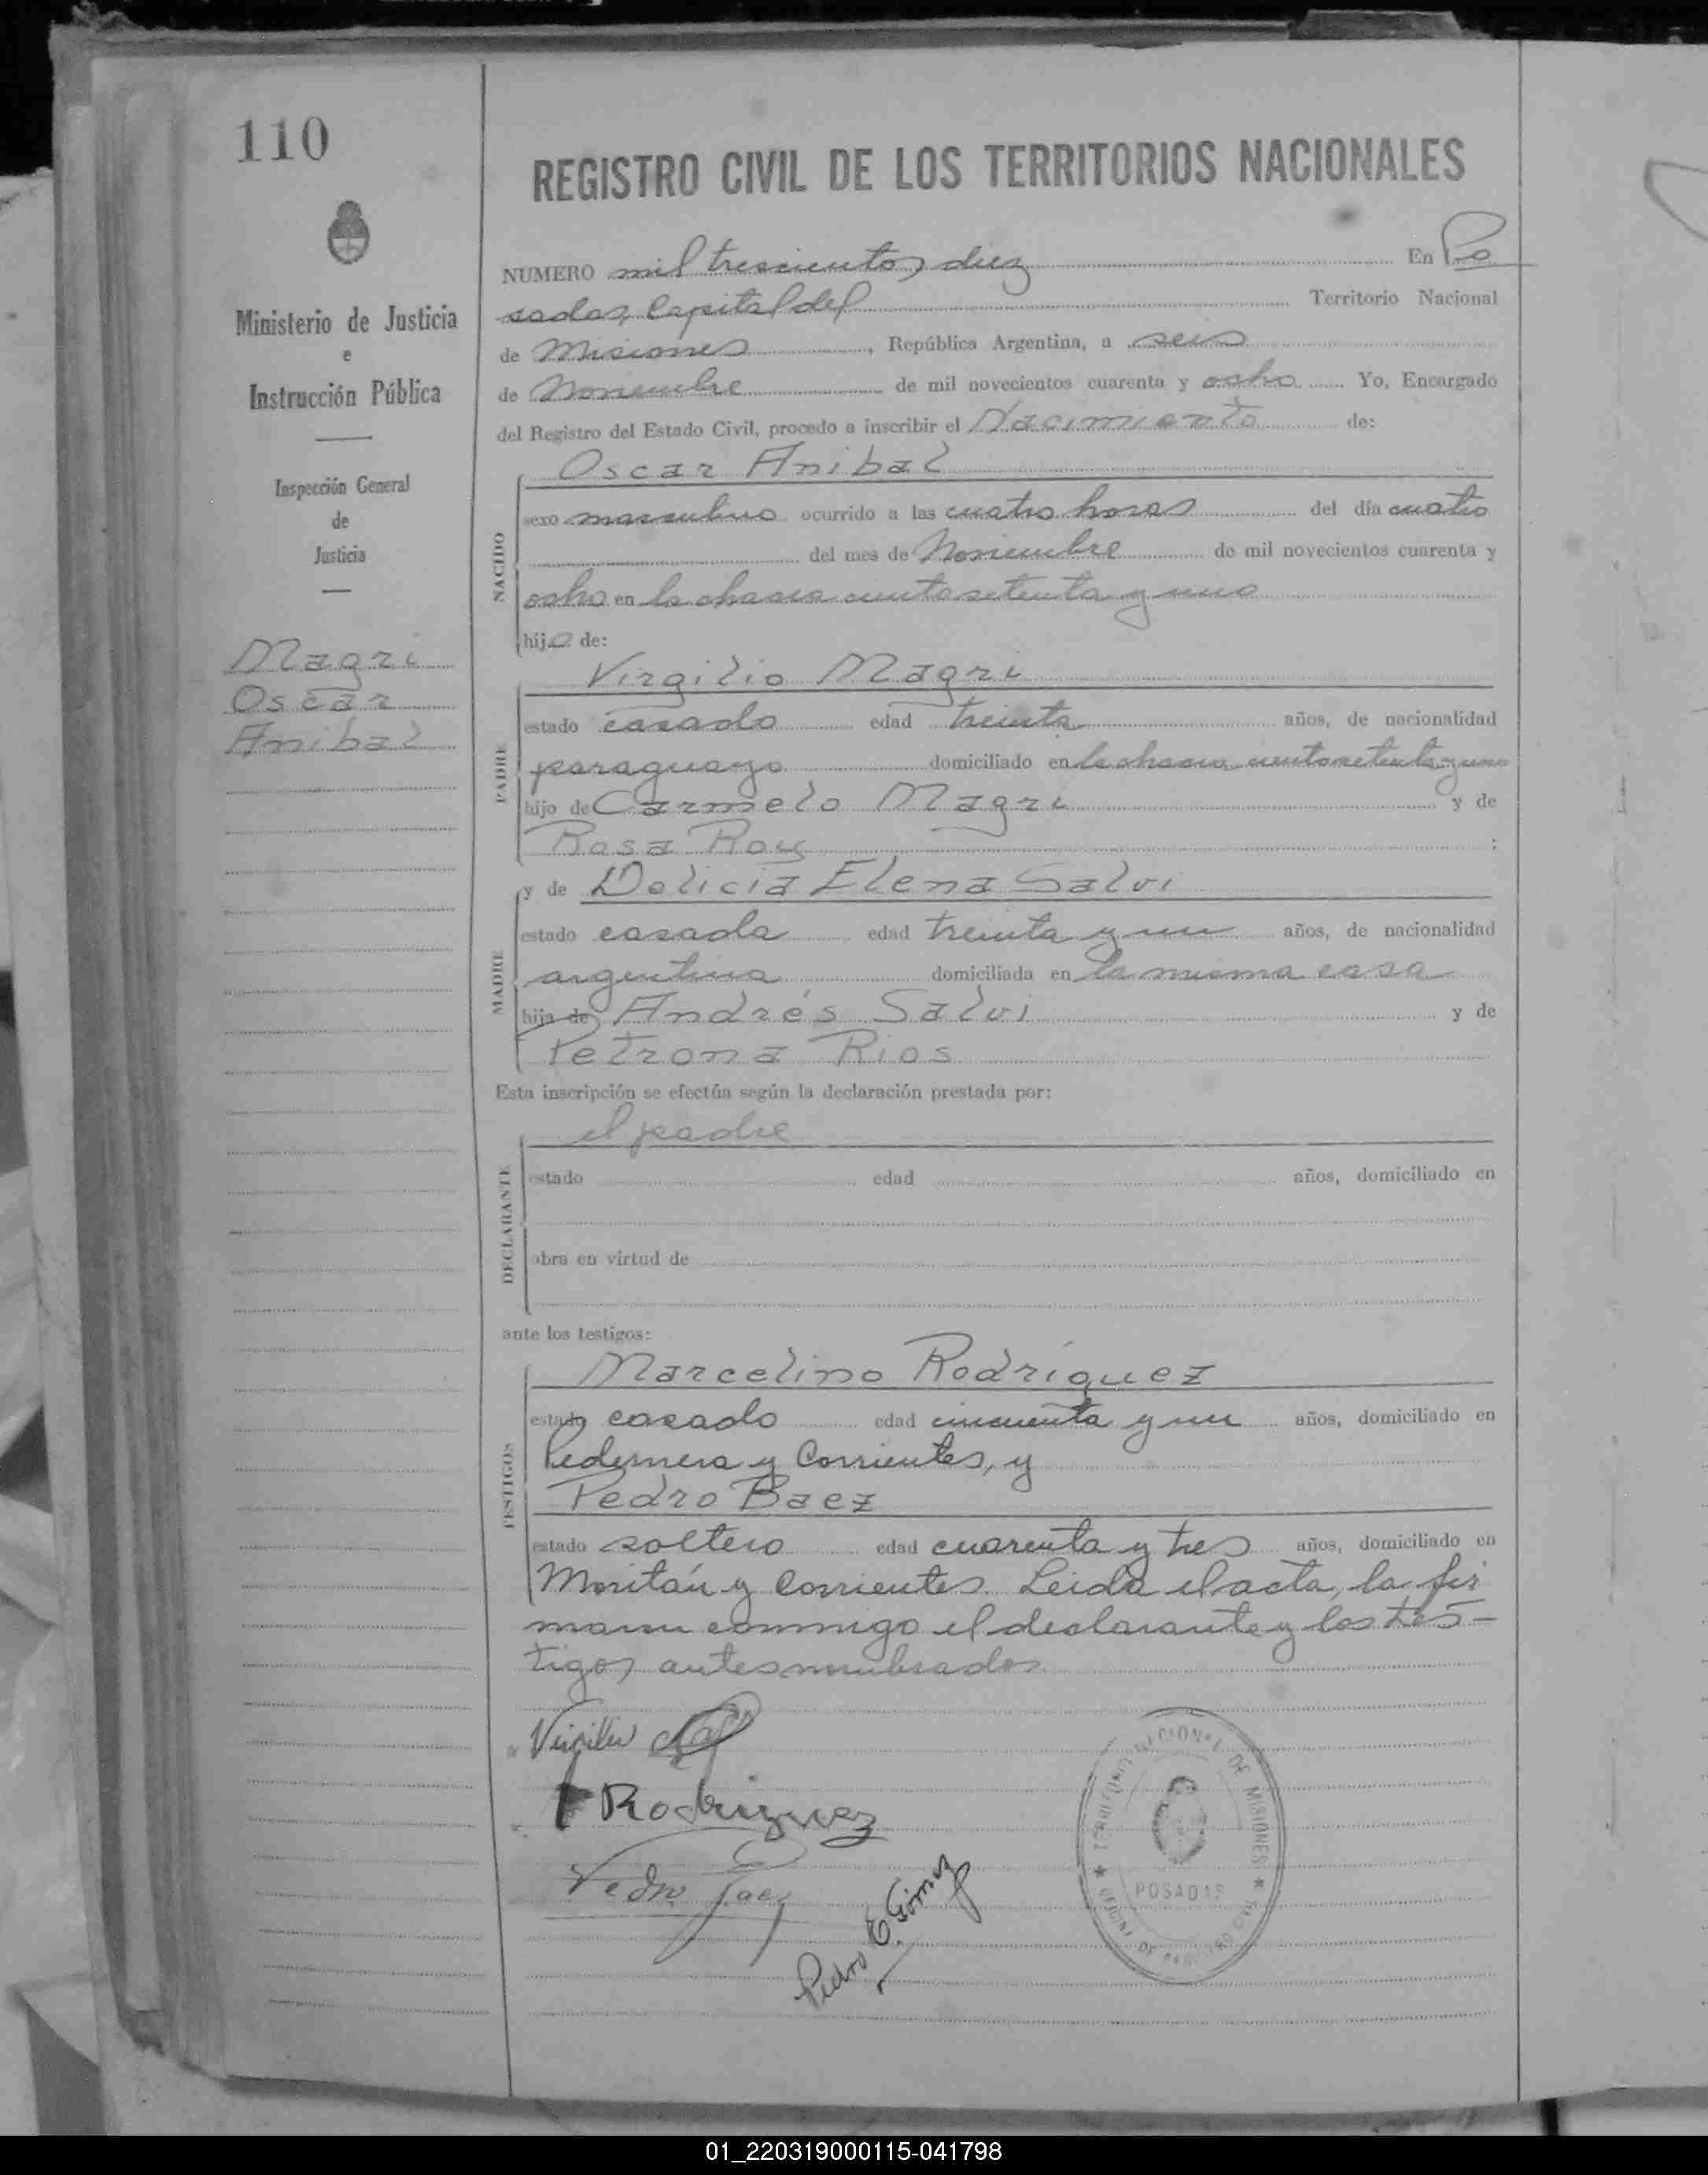 110
REGISTRO CIVIL DE LOS TERRITORIOS NACIONALES
Ministerio de Justicia
e
Instrucción Pública
Inspección General
de
Justicia
Magri
Oscar
Anibal
NUMERO mil trescientos diez En Po
sadas, Capital del Territorio Nacional
de Misiones, República Argentina, a seis
de Noviembre de mil novecientos cuarenta y ocho Yo, Encargado
del Registro del Estado Civil, procedo a inscribir el Nacimiento de:
NACIDO
Oscar Anibal
sexo masculino ocurrido a las cuatro horas del día cuatro
del mes de Noviembre de mil novecientos cuarenta y
ocho en la chacra ciento setenta y uno
hijo de:
PADRE
Virgilio Magri
estado casado edad treinta años, de nacionalidad
paraguayo domiciliado en la chacra ciento setenta y uno
hijo de Carmelo Magri y de
Rosa Roig;
MADRE
y de Delicia Elena Salvi
estado casada edad treinta y un años, de nacionalidad
argentina domiciliada en la misma casa
hija de Andrés Salvi y de
Petrona Rios
Esta inscripción se efectúa según la declaración prestada por:
DECLARANTE
el padre
estado edad años, domiciliado en
obra en virtud de
ante los testigos:
TESTIGOS
Marcelino Rodríguez
estado casado edad cincuenta y un años, domiciliado en
Pedernera y Corrientes, y
Pedro Baez
estado soltero edad cuarenta y tres años, domiciliado en
Moritán y Corrientes. Leida el acta, la fir
man conmigo el declarante y los tes-
tigos antes nombrados
Virgilio
Rodriguez
Pedro Baez
Pedro E. Gómez
TERRITORIO NACIONAL DE MISIONES
POSADAS
OFICINA DE REGISTRO CIVIL
01_220319000115-041798